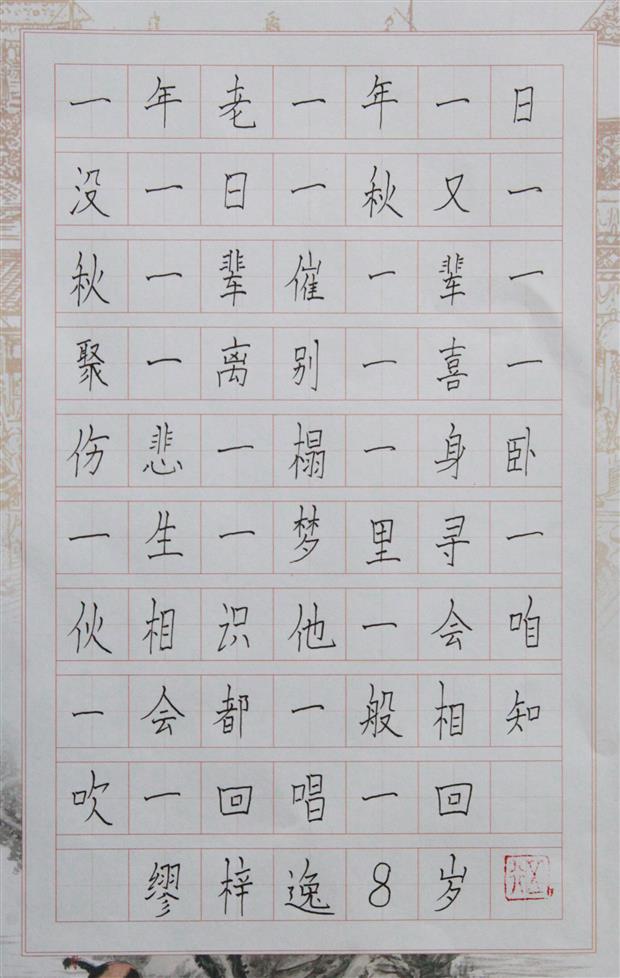 一年老一年一日
没一日一秋又一
秋一辈催一辈一
聚一离别一喜一
伤悲一榻一身卧
一生一梦里寻一
伙相识他一会咱
一会都一般相知
吹一回唱一回
缪梓逸8岁